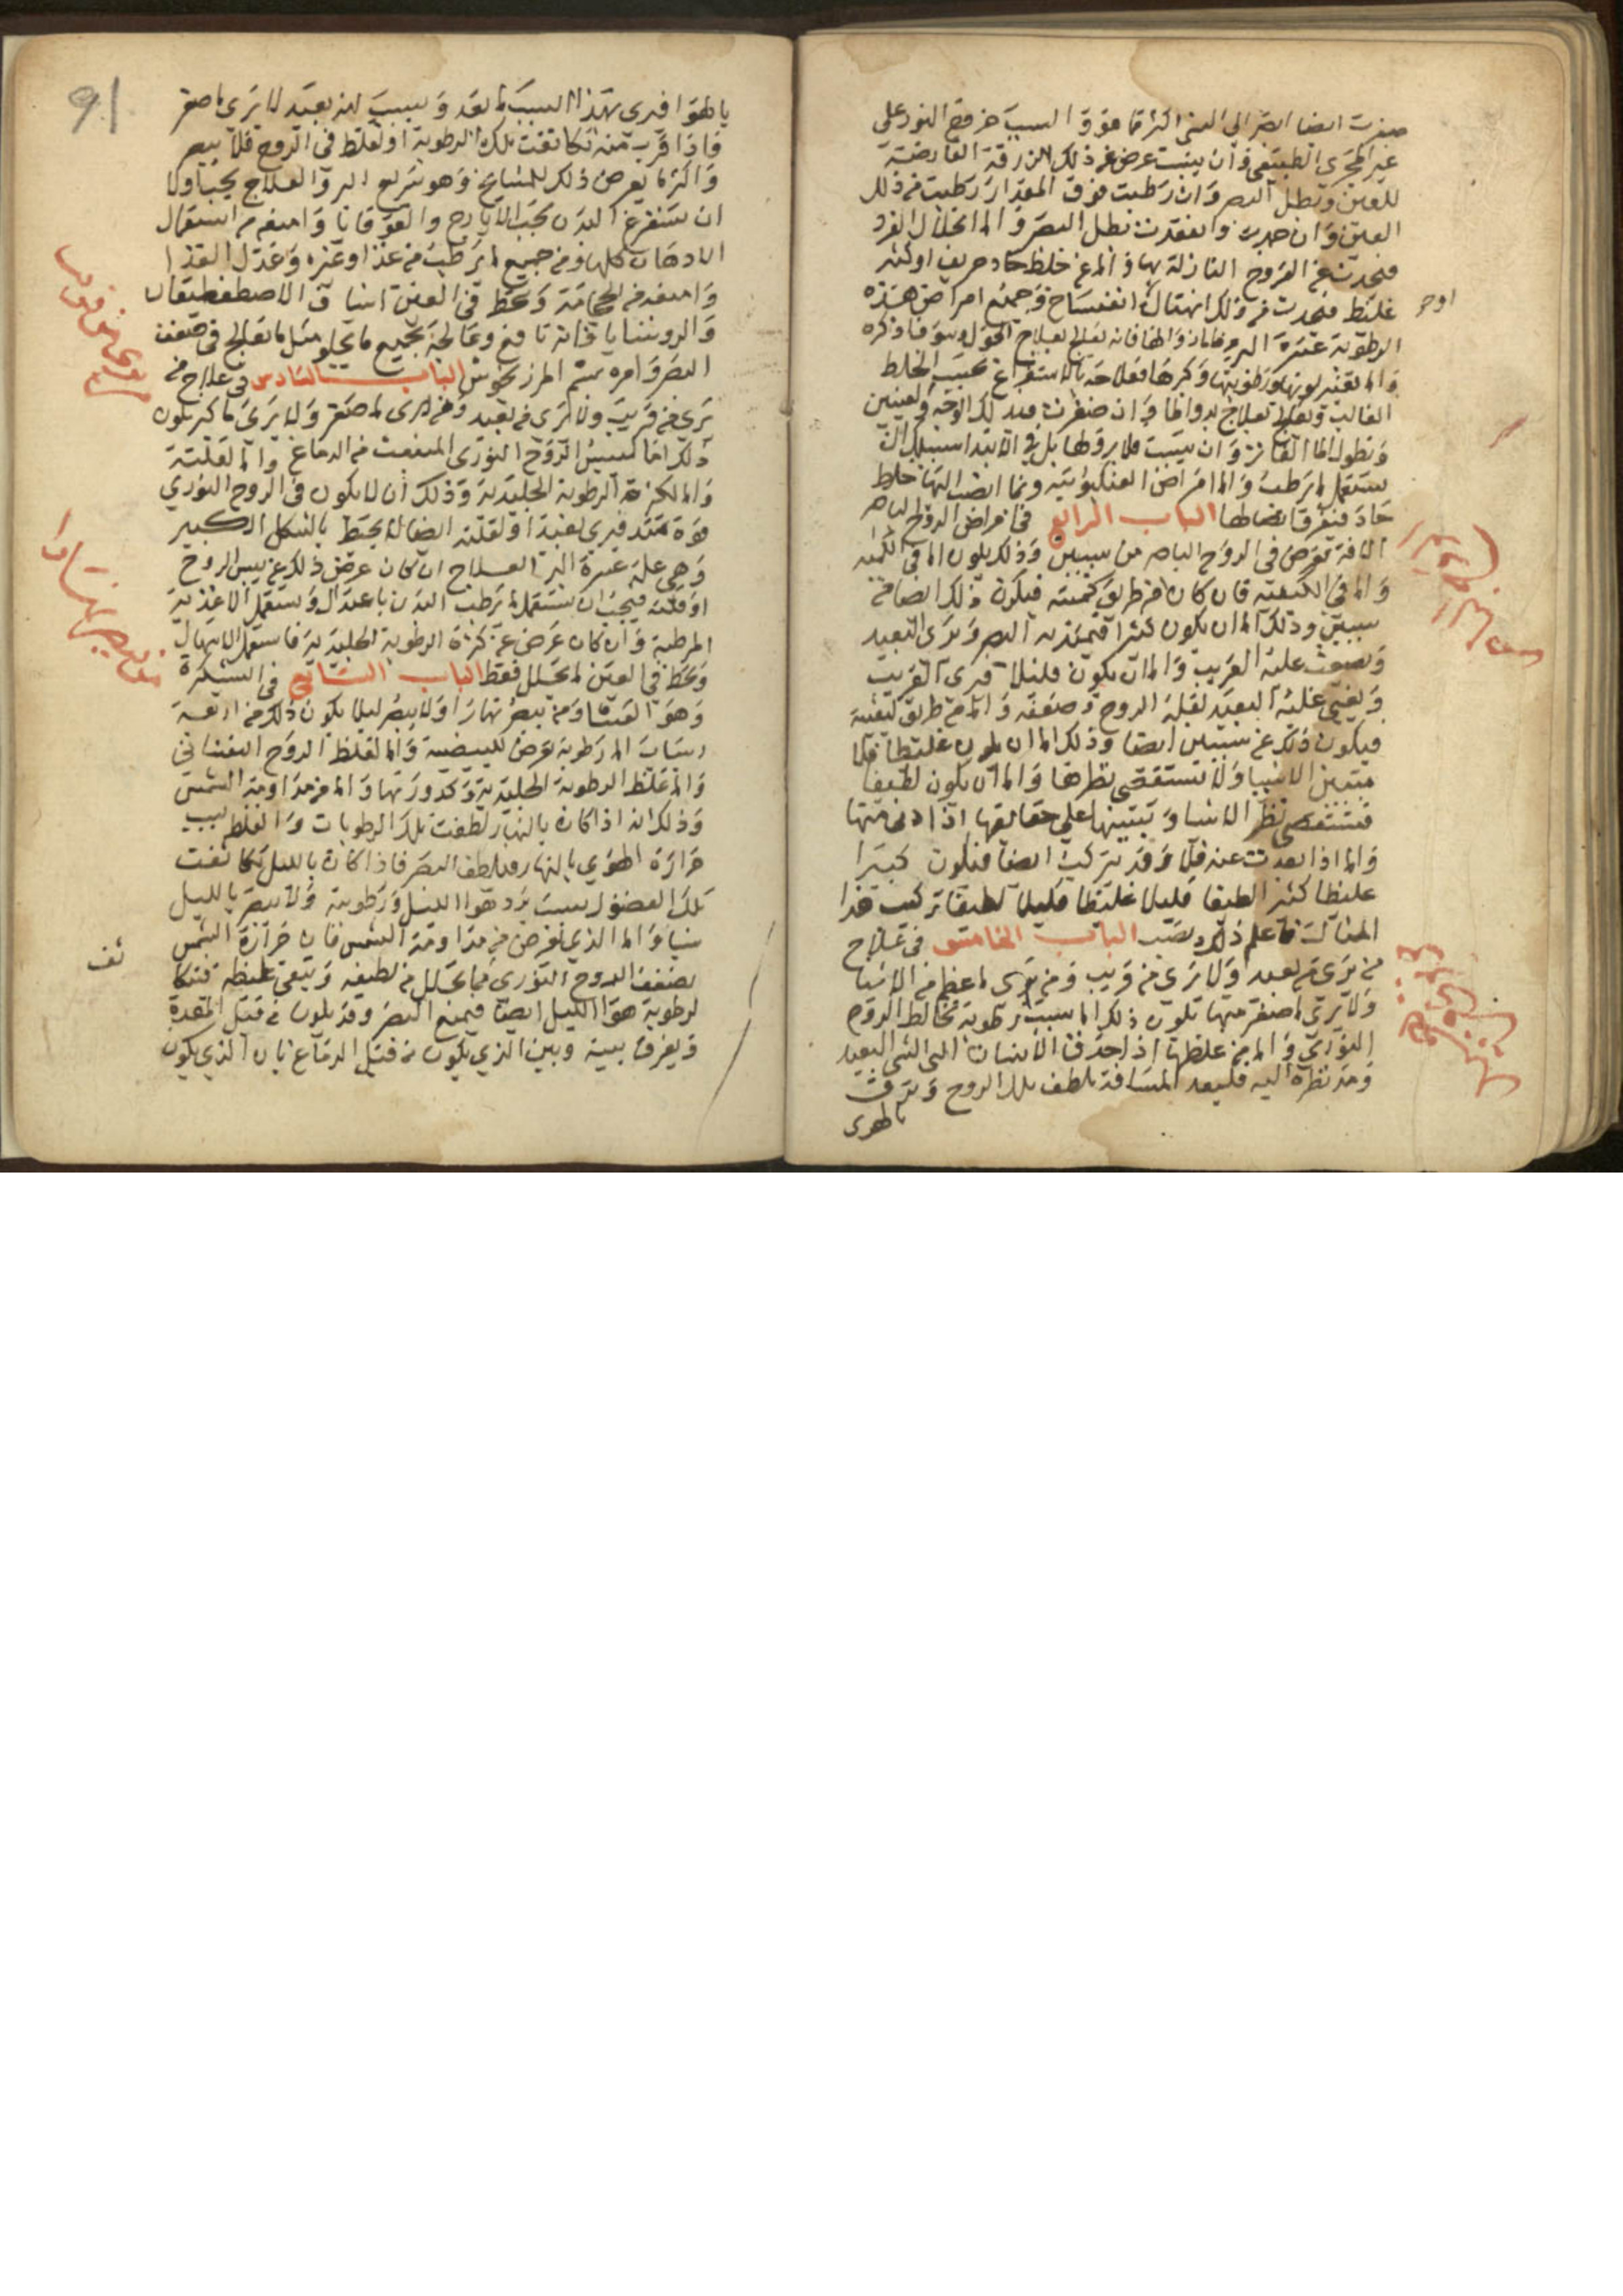 صغرت ايضا ابصر الى الشى اكثر مما هو و السبب خروج النور على
غير المجرى الطبيعى و ان يبست عرض من ذلك الزرقة العارضة
للعين وتبطل البصر وان رطبت فوق المقدار رطبت من ذلك
العين وان جدت و انعقدت بطل البصر و اما انحلال الفرد
فيحدث عن القروح النازلة بها و اما عن خلط حاد حريف او كثير
غليظ فيحدث من ذلك انهتاك انفساخ وجميع امراض هذه
الرطوبة عسرة البرء
واما تغير لونها ورطوبتها وكبرها فعلاجه بالاستفراغ بحسب الخلط
الغالب وتعالج بعلاج وان صغرت
وان يبست فلا برؤ لها بل فى الابتداء سبيلك ان
يستعمل ما يرطب و اما امراض العنكبوتية وبما انصب اليها خلط
حاد فتفرق اتصالها الباب الرابع فى امراض الروح الباصر
الافة تعرض فى الروح الباصر من سببين وذلك يكون اما فى الكمية
واما فى الكيفية فان كان من طريق كميته فيكون ذلك ايضا من
سببين وذلك اما ان يكون كثيرا فيمتد به البصر ويرى البعيد
عليه القريب و اما ان يكون قليلا فيرى القريب
ويخفى عليه البعيد لقلة الروح وضعفه و اما من طريق كيفيته
فيكون ذلك عن سببين ايضا وذلك اما ان يكون غليظا فلا
الاشيا ولا تستقصى نظرها و اما ان يكون لطيفا
فتستقصى نظر الاشيا وتتبينها على حقايقها اذا دنى منها
واما اذا بعدت عنه فلا وقد يتركب ايضا فيكون كثيرا
غليظا كثيرا لطيفا قليلا غليظا قليلا لطيفا تركيب هذا
المثال فاعلم ذلك الباب الخامس فى علاج
من يرى من بعيد ولا يرى من قريب ومن يرى ما عظم من الاشيا
ولا يرى ما صغر منها يكون ذلك اما بسبب رطوبة تخالط الروح
النورى و اما من غلظها اذا احدق الانسان الى الشى البعيد
ومد نظره اليه فلبعد المسافة يلطف تلك الروح ويرق
بالهوى
اوحر
91
بالهوا فيرى بهذا السبب ما بعد وبسبب انه بعيد لا يرى ما صغر
فاذا قرب منه تكاثفت تلك الرطوبة او لغلظ فى الروح فلا يبصر
واكثر ما يعرض ذلك للمشايخ وهو سريع البرو العلاج يجب اولا
ان يستفرغ البدن بحب الايارج والقوقايا وامنعه من استعمال
الادهان كلها ومن جميع ما يرطب من غذا وغيره وعدل الغذا
وامنعه من الحجامة وحط فى العين اشياف الاصطفطيقان
والروشنايا فانه نافع وعالجه بجميع ما يجلو مثل ما تعالج فى ضعف
البصر وامره بشم المرزنجوش الباب السادس فى علاج من
يرى من قريب ولا يرى من بعيد ومن يرى ما صغر ولا يرى ما كبر يكون
ذلك اما ليبس الروح النورى المنبعث من الدماغ واما لقلته
واما لكثرة الرطوبة الجليدية وذلك ان لا يكون فى الروح النورى
قوة تمتد فيرى بعيدا ولقلته ايضا لا يحيط بالشكل الكبير
وهى علة عسرة البرء العلاج ان كان عرض ذلك عن يبس الروح
او قلته فيجب ان يستعمل ما يرطب البدن باعتدال ويستعمل الاغذية
المرطبة وان كان عرض عن كثرة الرطوبة الجليدية فاستعمل الاسهال
وتحط فى العين ما يحلل فقط الباب السابع فى الشبكرة
وهو العشا ومن يبصر نهارا ولا يبصر ليلا يكون ذلك من اربعة
اسباب اما رطوبة تعرض للبيضية واما لغلظ الروح النفسانى
واما غلظ الرطوبة الجليدية وكدورتها واما من مداومة الشمس
وذلك انه اذا كان بالنهار لطفت تلك الرطوبات والغلظ بسبب
حرارة الهوى بالنهار فيلطف البصر فاذا كان بالليل تكاثفت
تلك الفضول بسبب برد هوا الليل ورطوبته ولا يبصر بالليل
شيا واما الذى يعرض من مداومة الشمس فان حرارة الشمس
يضعف الروح النورى مما يحلل من لطيفه ويبقى غليظه فيتكا
ثف
لرطوبة هوا الليل ايضا فيمنع البصر وقد يكون من قبل المعدة
ويفرق بينه وبين الذى يكون من قبل الدماغ بان الذى يكون